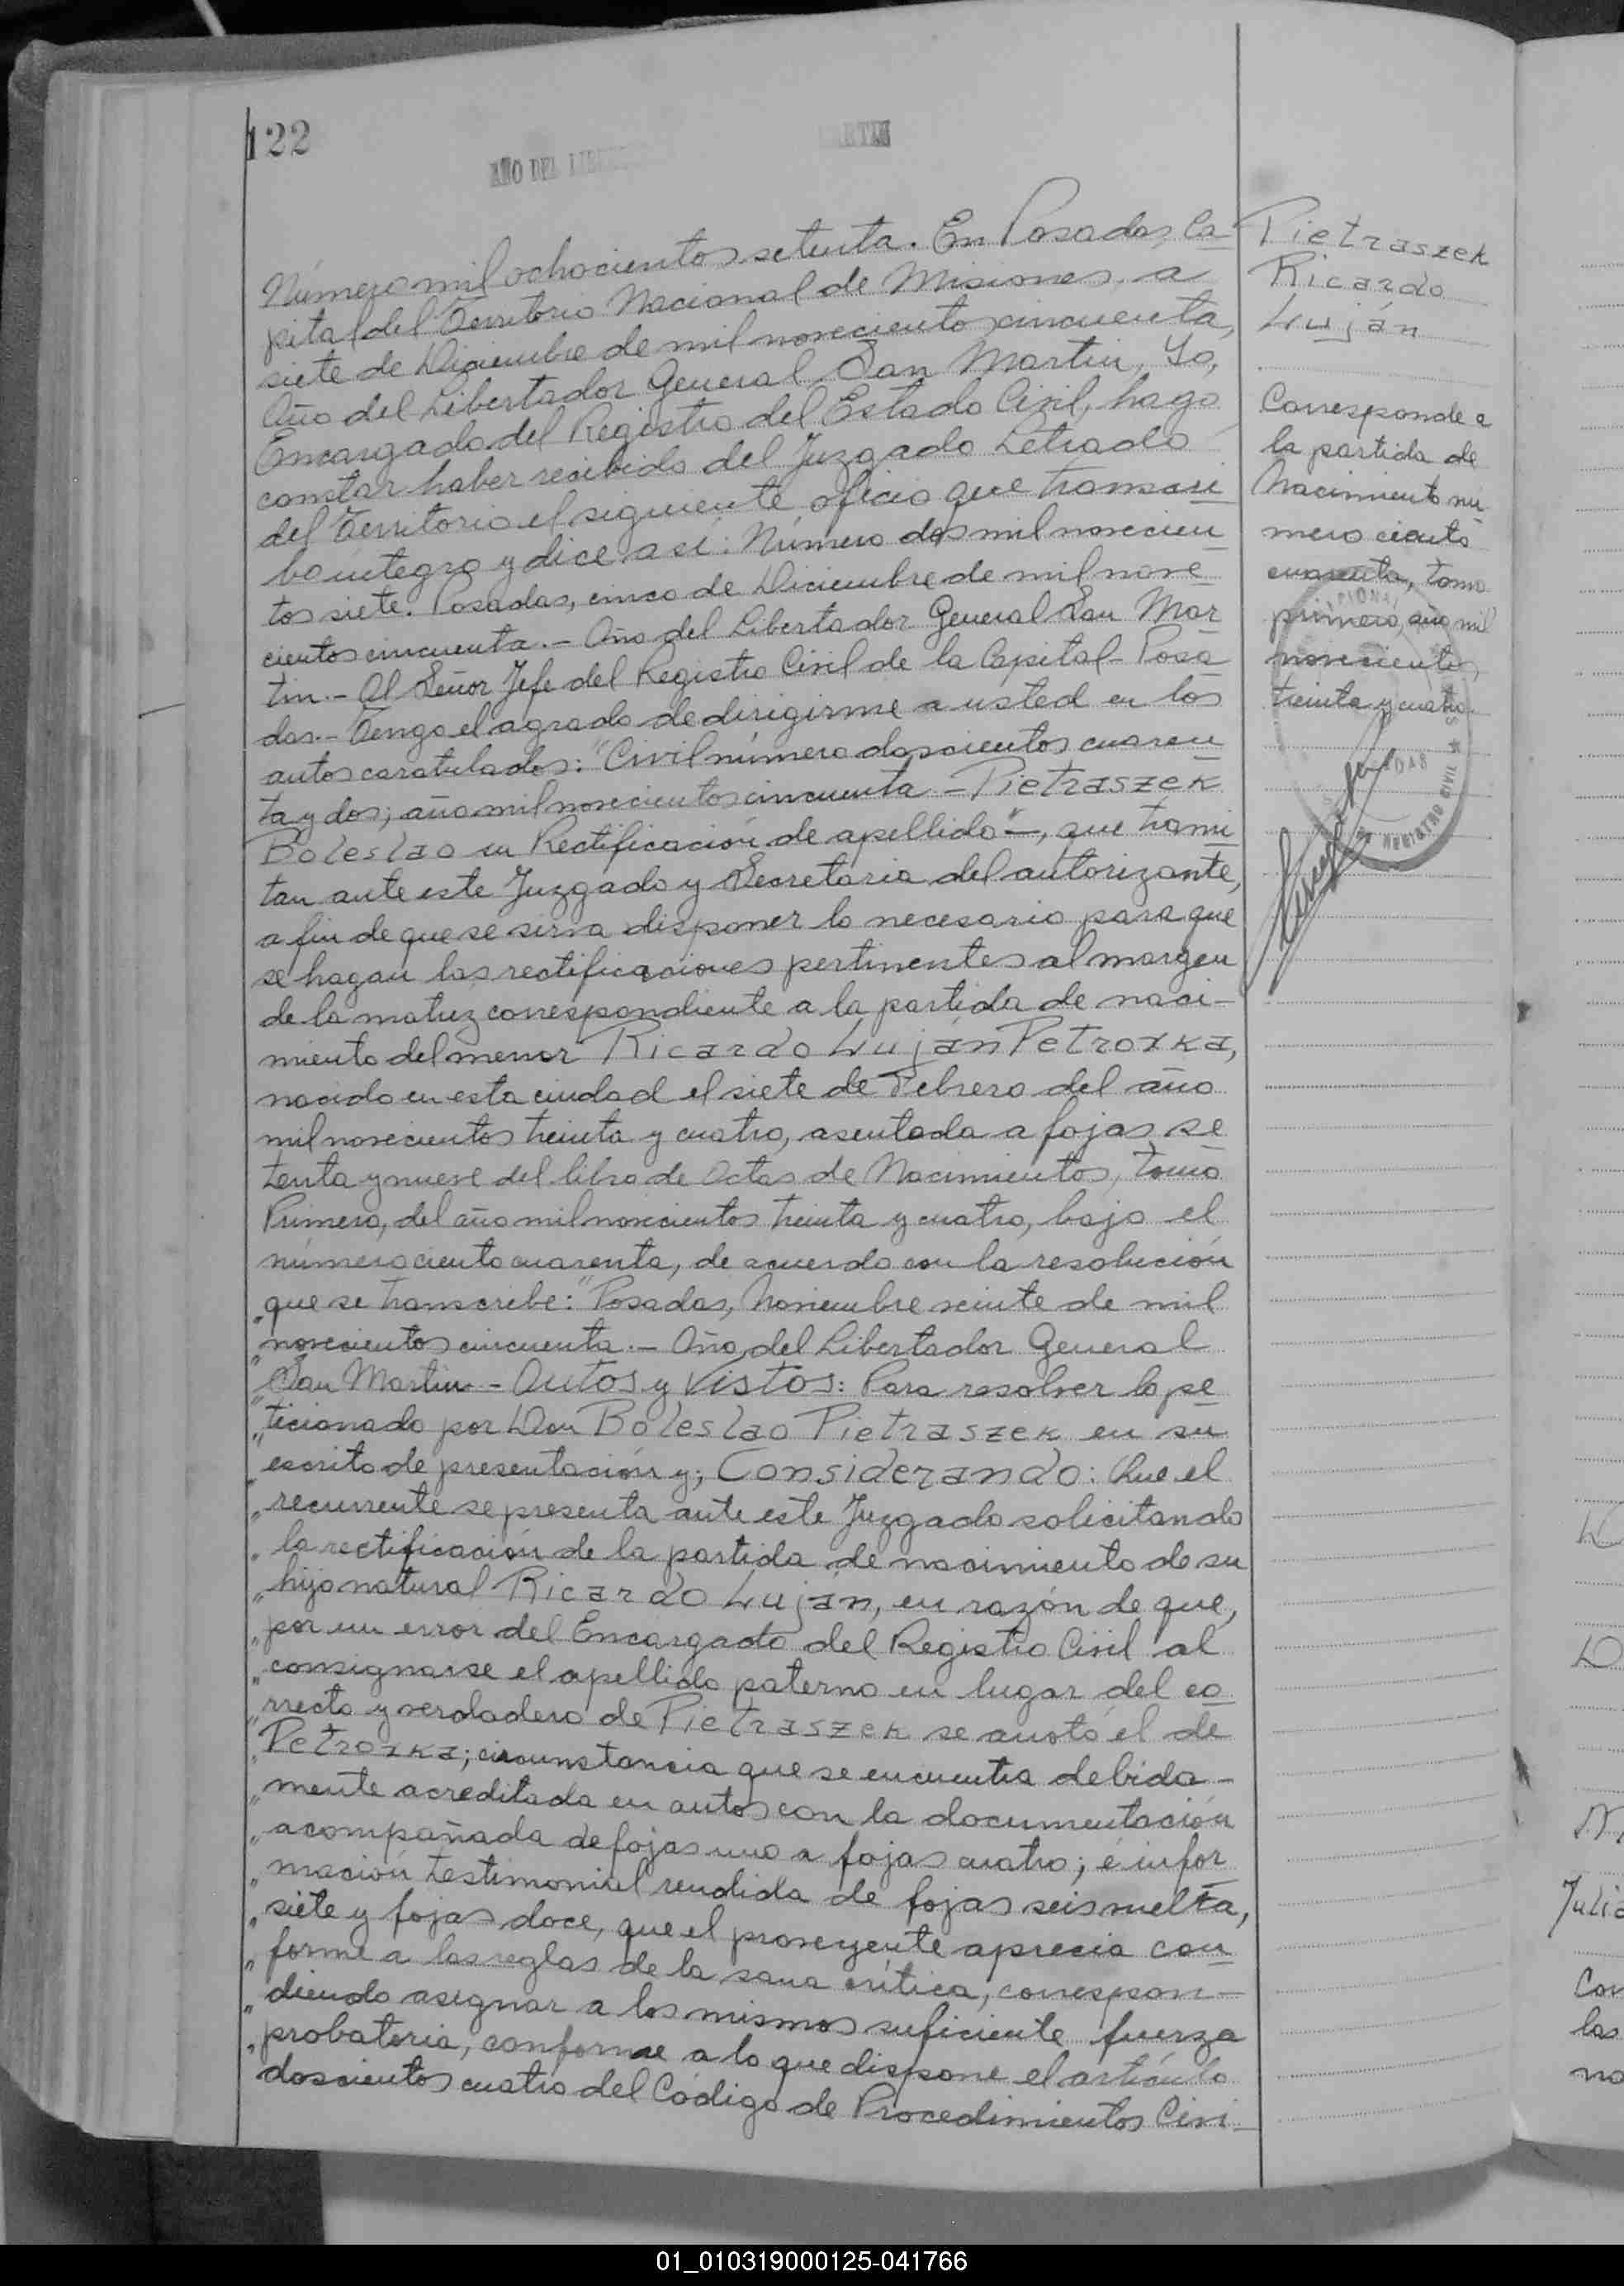 122
AÑO DEL
Número mil ochocientos setenta. En Posadas, Ca
pital del Territorio Nacional de Misiones, a
siete de Diciembre de mil novecientos cincuenta,
Año del Libertador General San Martin, Yo,
Encargado del Registro del Estado Civil, hago
constar haber recibido del Juzgado Letrado
del Territorio el siguiente oficio que transcri
bo íntegro y dice así: Número dos mil novecien
tos siete. Posadas, cinco de Diciembre de mil nove
cientos cincuenta.- Año del Libertador General San Mar
tin.- Al Señor Jefe del Registro Civil de la Capital- Posa
das.- Tengo el agrado de dirigirme a usted en los
autos caratulados: "Civil número doscientos cuaren
ta y dos; año mil novecientos cincuenta - Pietraszek
Boleslao en Rectificación de apellido"-, que trami
tan ante este Juzgado y Secretaria del autorizante,
a fin de que se sirva disponer lo necesario para que
se hagan las rectificaciones pertinentes al margen
de la matriz correspondiente a la partida de naci-
miento del menor Ricardo Luján Petroska,
nacido en esta ciudad el siete de Febrero del año
mil novecientos treinta y cuatro, asentada a fojas se
tenta y nueve del libro de Actas de Nacimientos, Tomo
Primero, del año mil novecientos treinta y cuatro, bajo el
número ciento cuarenta, de acuerdo con la resolución
"que se transcribe: "Posadas, Noviembre veinte de mil
"novecientos cincuenta.- Año del Libertador General
"San Martin - Autos y Vistos: Para resolver lo pe
"ticionado por Don Boleslao Pietraszek en su
"escrito de presentación y; Considerando: Que el
"recurrente se presenta ante este Juzgado solicitando
"la rectificación de la partida de nacimiento de su
"hijo natural Ricardo Luján, en razón de que,
"por un error del Encargado del Registro Civil al
"consignarse el apellido paterno en lugar del co
"rrecto y verdadero de Pietraszek se anotó el de
"Petroska; circunstancia que se encuentra debida-
"mente acreditada en autos con la documentación
"acompañada de fojas uno a fojas cuatro; é infor
"mación testimonial rendida de fojas seis vuelta,
"siete y fojas doce, que el proveyente aprecia con
"forme a las reglas de la sana crítica, correspon-
"diendo asignar a los mismos suficiente fuerza
"probatoria, conforme a lo que dispone el artículo
doscientos cuatro del Código de Procedimientos Civi
Pietraszek
Ricardo
Luján
Corresponde a
la partida de
Nacimiento nú
mero ciento
cuarenta, tomo
primero, año mil
novecientos
treinta y cuatro.
REGISTRO CIVIL
Julia
Con
las
no
01_010319000125-041766